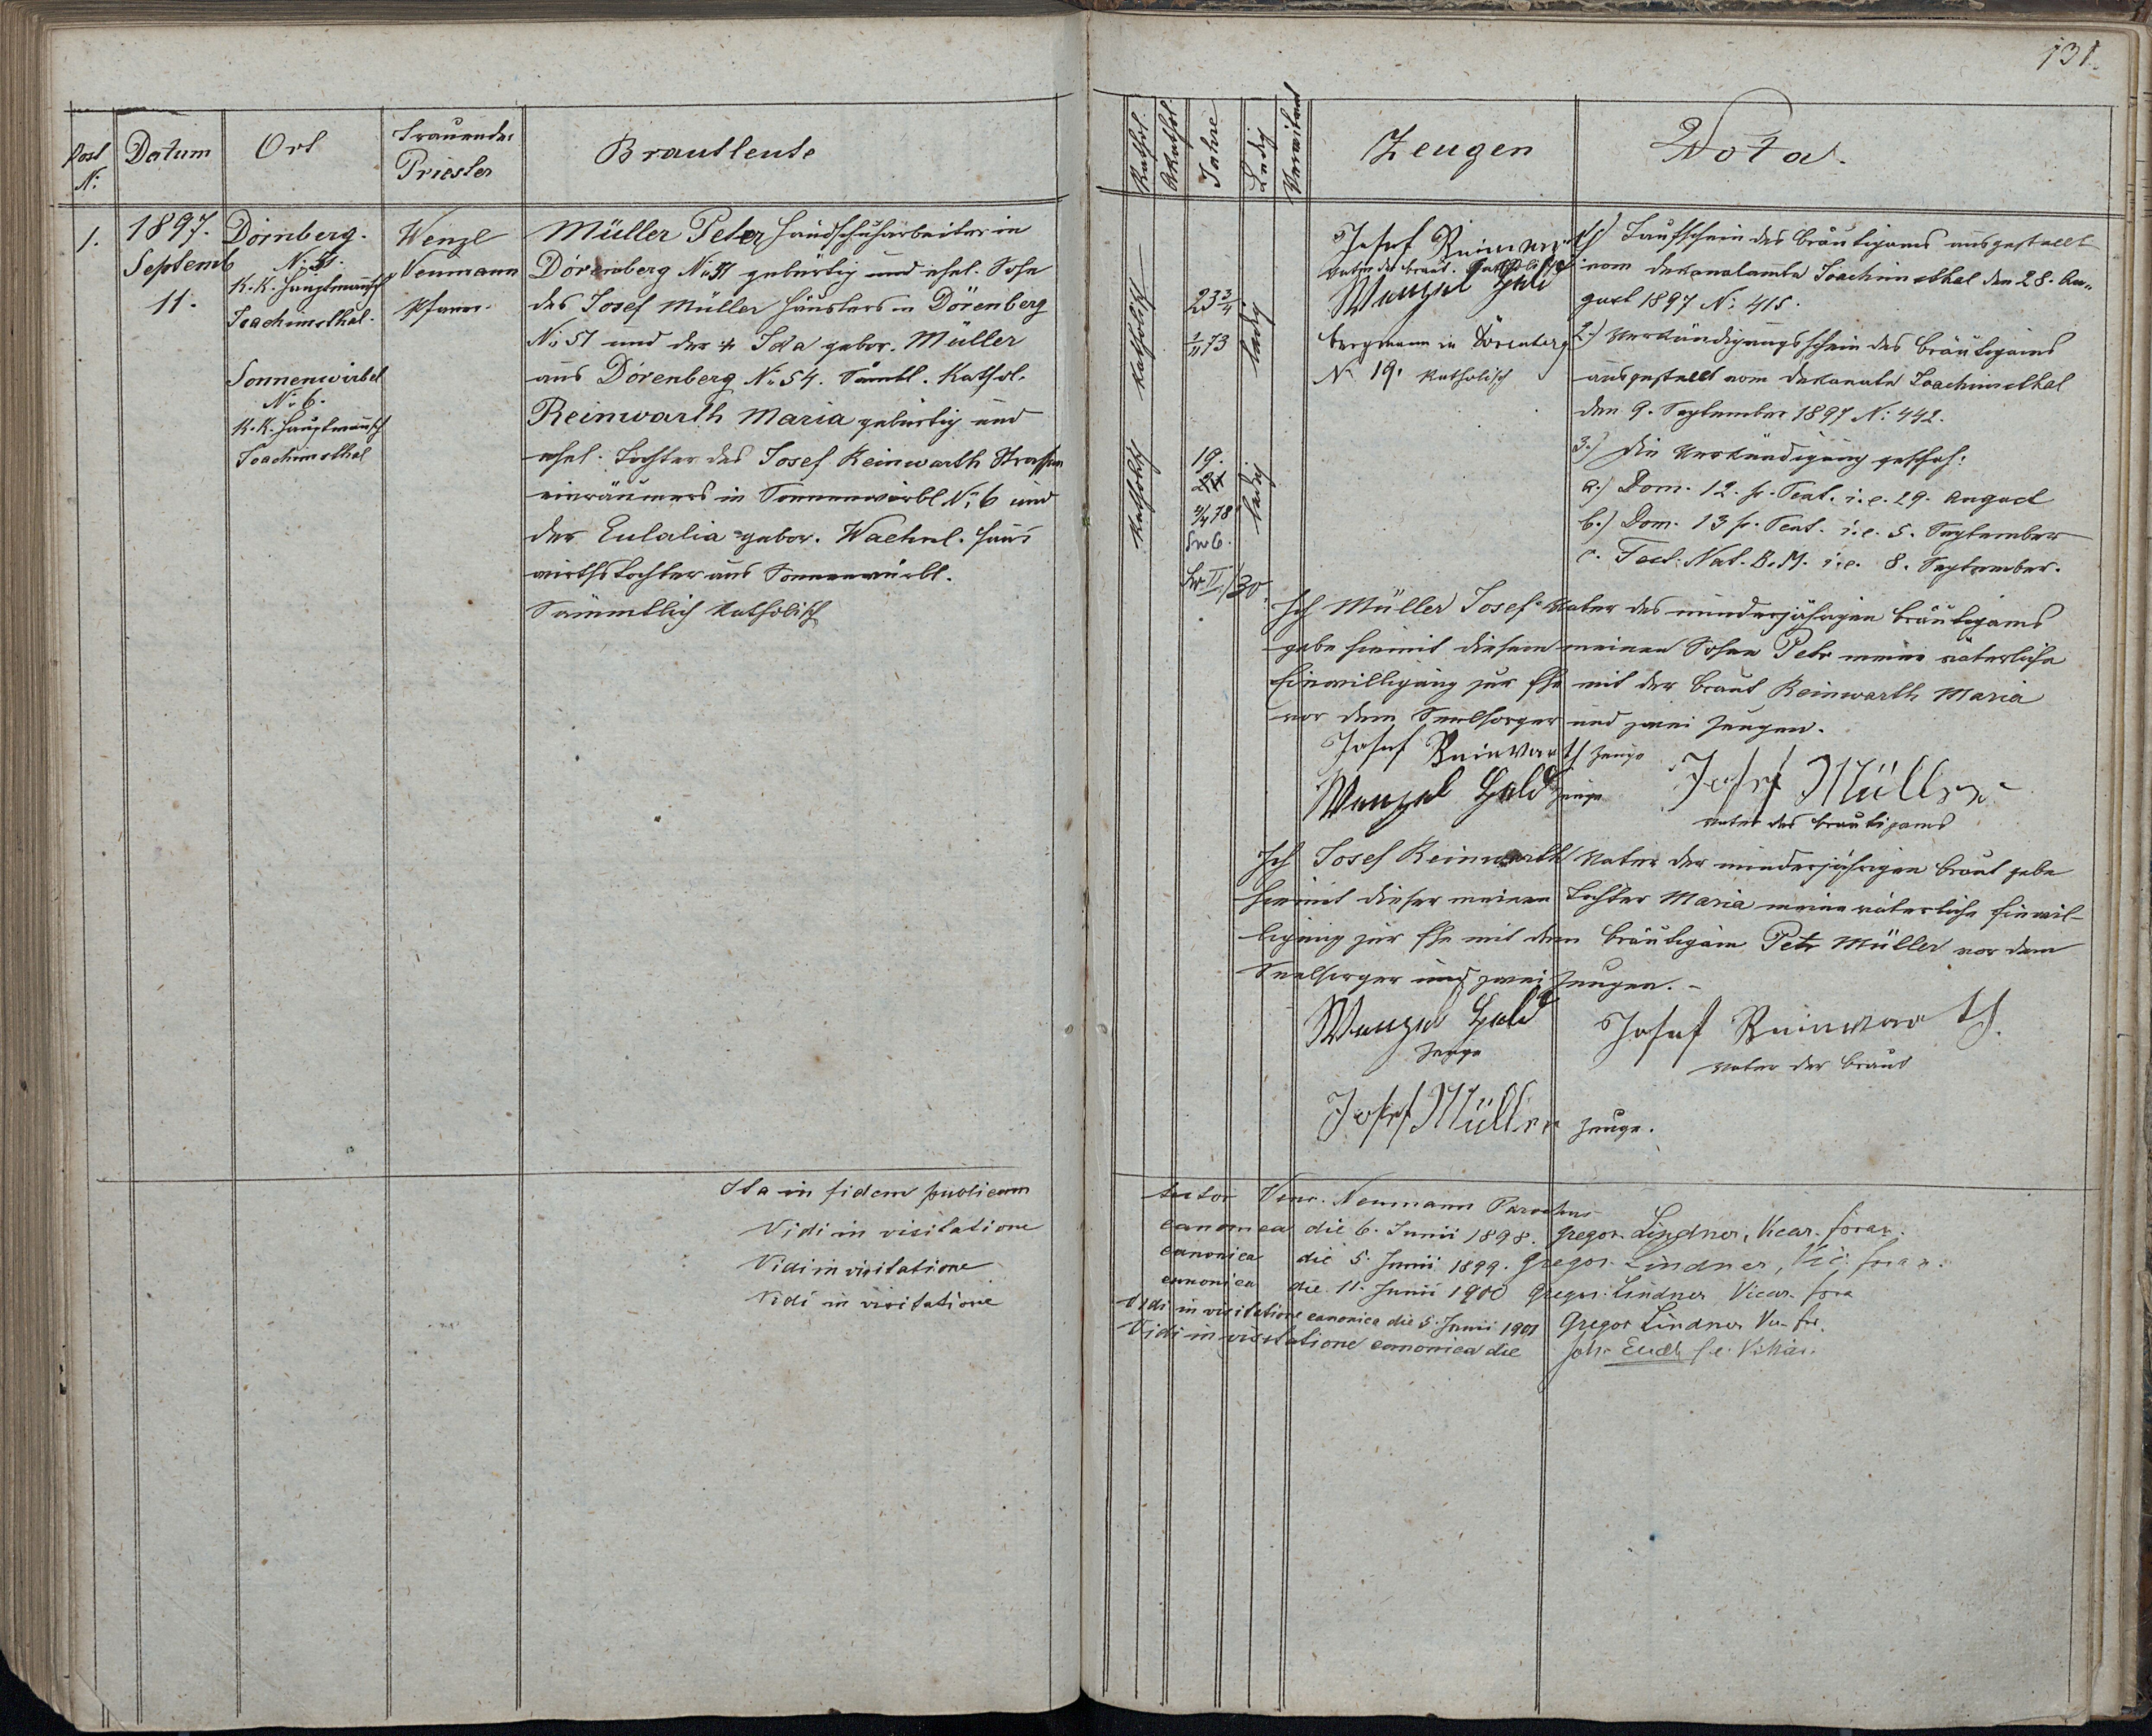 131.
Post N:
Datum
Ort
Trauender Priester
Brautleute
Kathol.
Akathol.
Jahre
Ledig
Verwitwet
Zeugen
Nota.
1.
1897.
Septemb
11.
Dörnberg.
N: 51.
K. K. Hauptmannsch
Joachimsthal.
Sonnenwirbel
N: 6.
K. K. Hauptmannsch
Joachimsthal
Wenzl
Neumann
Pfarrer.
Müller Peter Handschuharbeiter in
Dörenberg N: 51 gebürtig und ehel. Sohn
des Josef Müller Häuslers in Dörenberg
N: 51 und der Ida gebor. Müller
aus Dörenberg N: 54. Sämtl. Kathol.
Reinwarth Maria gebürtig und
ehel. Tochter des Josef Reinwarth Strassen
einräumers in Sonnenwirbl N: 6 und
der Eulalia gebor. Wachnl. Haus
wirthstochter aus Sonnenwirbl.
Sämmtlich Katholisch
Katholisch
Katholisch
23 3/4
1/11 73
19.
4/4 78
ledig
ledig
Josef Reinwarth
Vater der Braut. Katholisch
Wenzel Held
Bergmann in Dörenberg
N 19. Katholisch
1.) Taufschein des Bräutigams ausgestellt
vom Dekanalamte Joachimsthal den 28. Au-
gust 1897 N: 415.
2.) Verkündigungsschein des Bräutigams
ausgestellt vom Dekanate Joachimsthal
den 9. September 1897 N: 442.
3.) Die Verkündigung geschah:
a.) Dom. 12. p. Pent. i. e. 29. August
b.) Dom. 13 p. Pent. i. e. 5. September
c. Fest: Nat. B. M. i. e. 8. September.
Ich Müller Josef Vater des minderjährigen Bräutigams
gebe hiemit diesem meinen Sohne Petr meine väterliche
Einwilligung zur Ehe mit der Braut Reinwarth Maria
vor dem Seelsorger und zwei Zeugen.
Josef Reinwarth Zeuge
Wenzel Held Zeuge
Josef Müller
Vater des Bräutigams
Ich Josef Reinwarth Vater der minderjährigen Braut gebe
hiemit dieser meinen Tochter Maria meine väterliche Einwil-
ligung zur Ehe mit dem Bräutigam Petr Müller vor dem
Seelsorger und zwei Zeugen. -
Wenzel Held
Zeuge
Josef Reinwarth.
Vater der Braut
Josef Müller Zeuge.
Ita in fidem publicam testor Wenc. Neumann Parochus
Vidi in visitatione canonica die 6. Junii 1898. Gregor. Lindner, Vicar. foran.
Vidi in visitatione canonica die 5. Junii 1899. Gregor Lindner, Vic. foran.
Vidi in visitatione canonica die 11. Junii 1900 Gregor. Lindner Vicar. fora
Vidi in visitatione canonica die 5. Junii 1901 Gregor Lindner Vic. for.
Vidi in visitatione canonica die Joh.